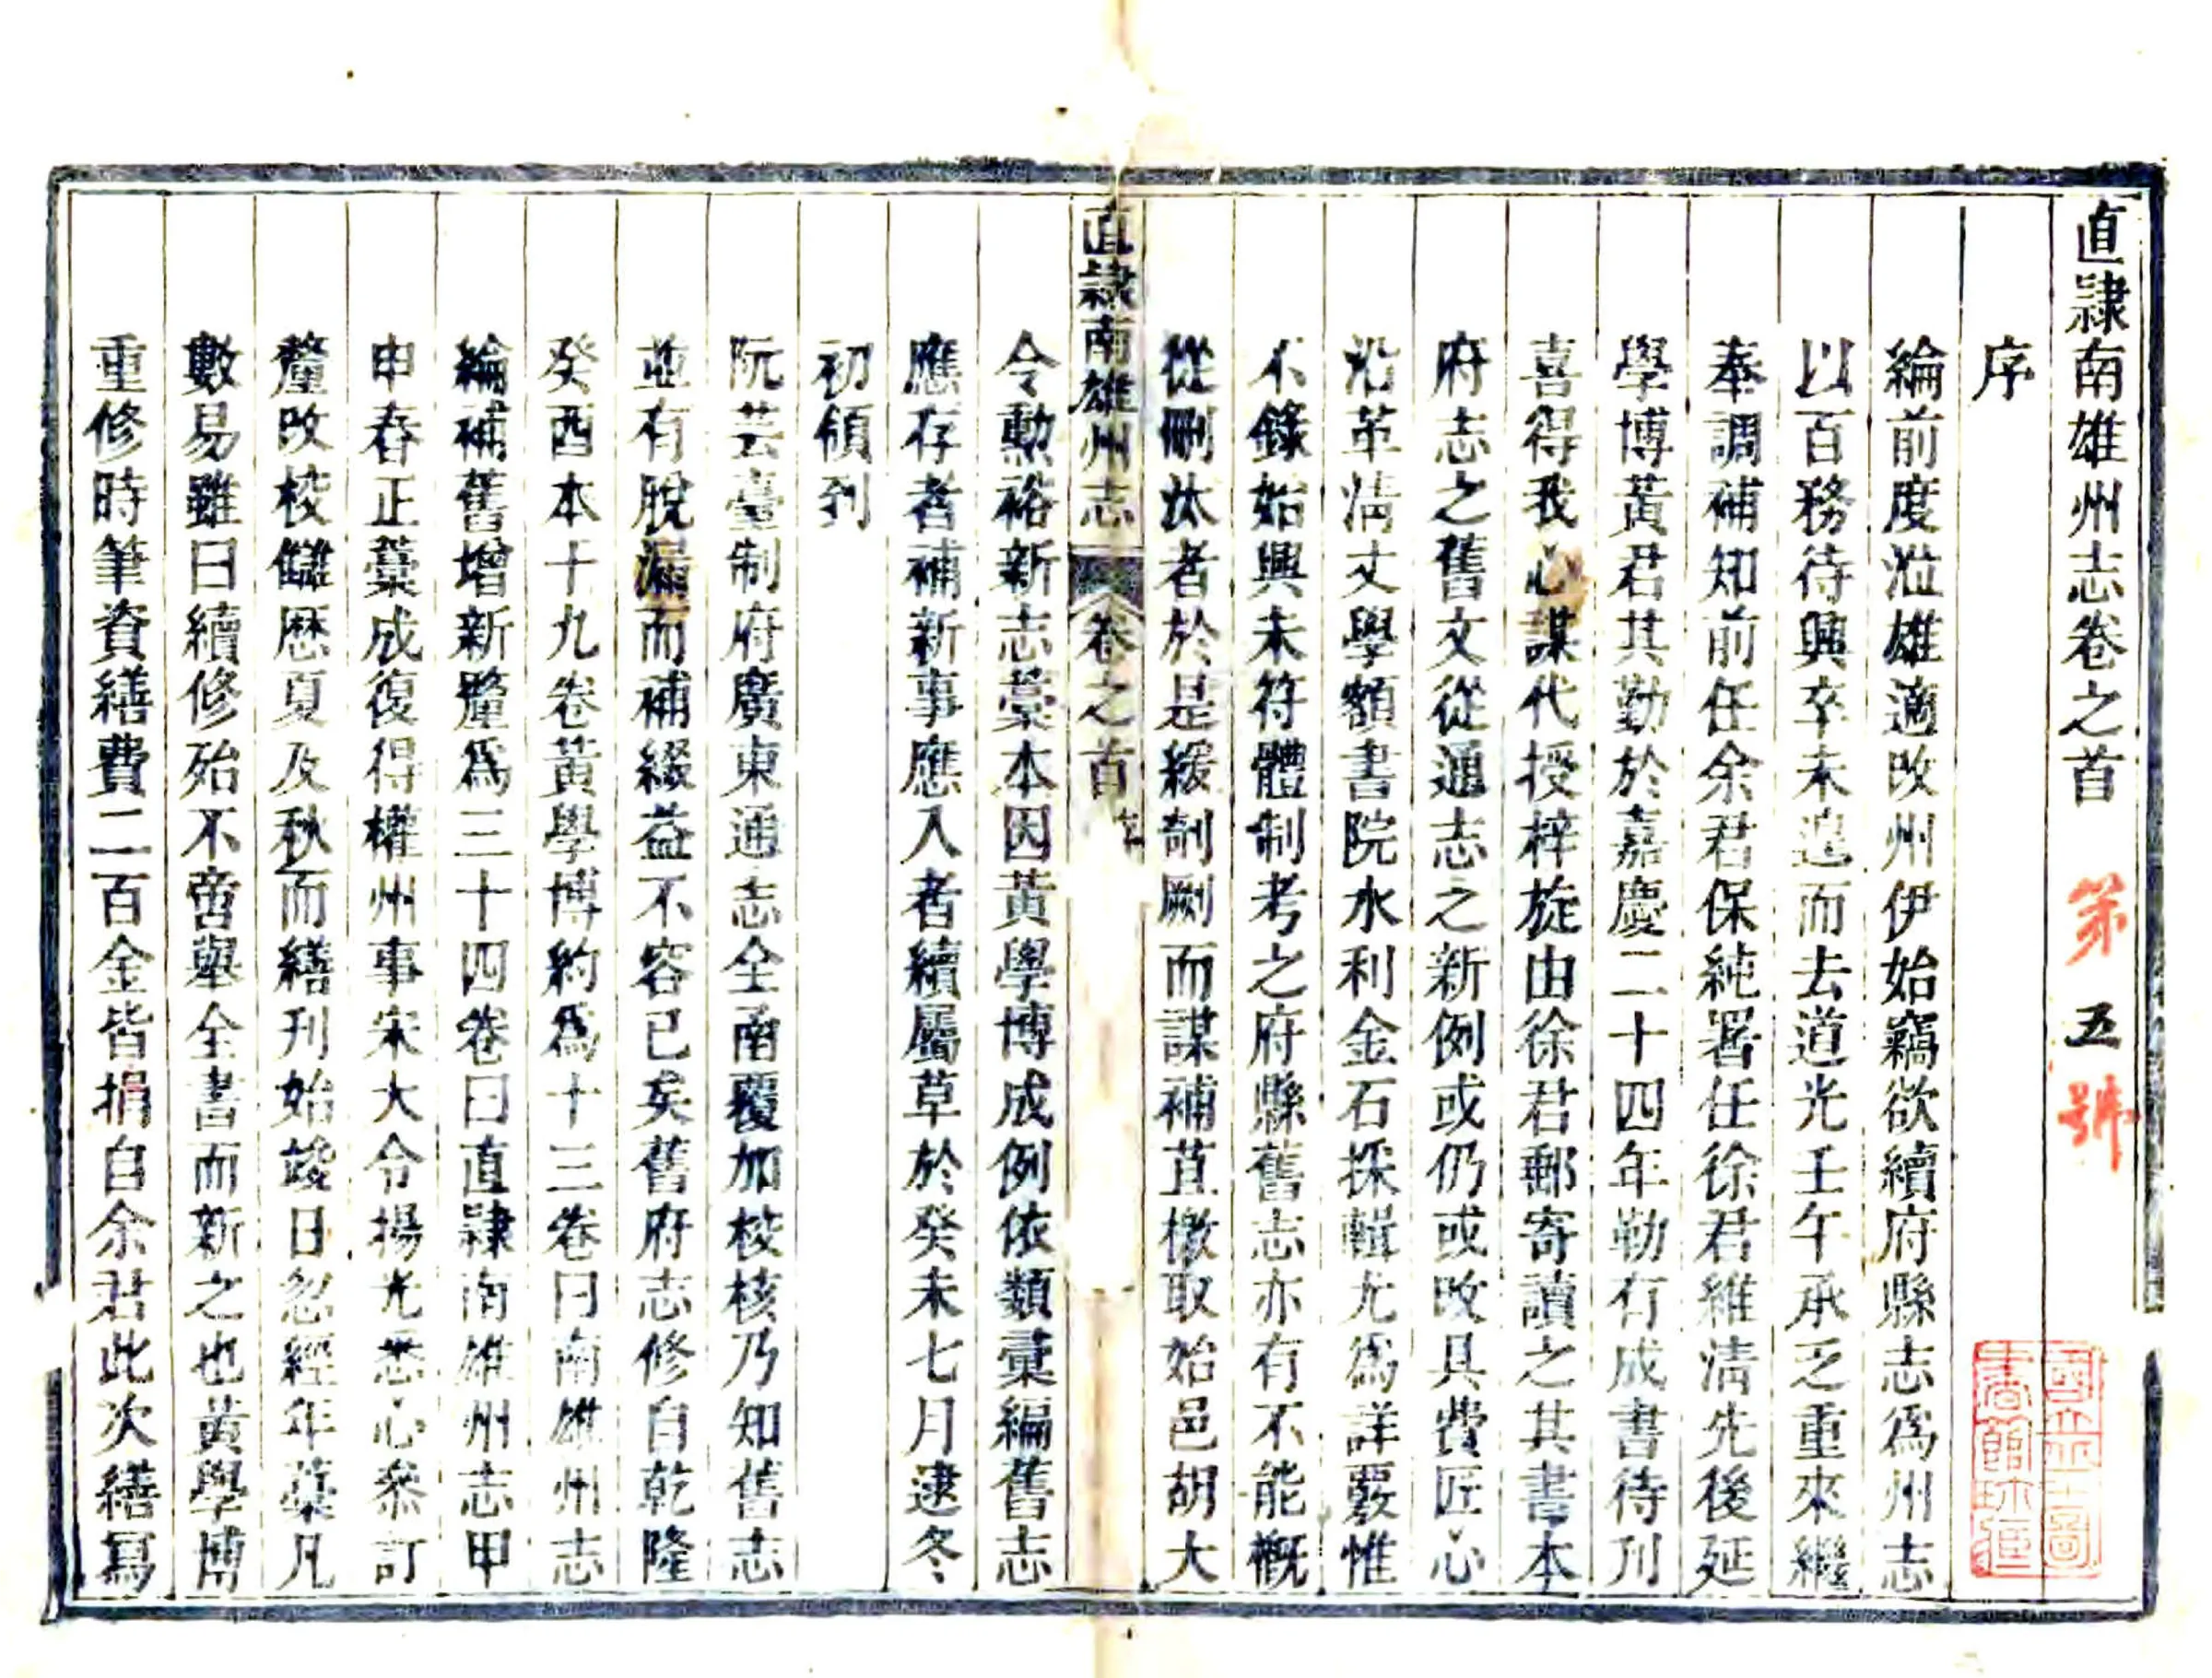 直隸南雄州志卷之首 第五號
序
綸前度涖雄適改州伊始竊欲續府縣志爲州志
以百務待興卒未遑而去道光壬午承乏重來繼
奉調補知前任余君保純署任徐君維清先後延
學博黃君其勤於嘉慶二十四年勒有成書待刊
喜得我心謀代授梓旋由徐君郵寄讀之其書本
府志之舊文從通志之新例或仍或改具費匠心
沿革清丈學額書院水利金石採輯尤爲詳覈惟
不錄始興未符體制考之府縣舊志亦有不能槪
從刪汰者於是緩剞劂而謀補苴檄取始邑胡大
直隸南雄州志 卷之首
令勳裕新志藁本因黃學博成例依類彙編舊志
應存者補新事應入者續屬草於癸未七月逮冬
初領到
阮芸臺制府廣東通志全函覆加校核乃知舊志
並有脫漏而補綴益不容已矣舊府志修自乾隆
癸酉本十九卷黃學博約爲十三卷曰南雄州志
綸補舊增新釐爲三十四卷曰直隸南雄州志甲
申春正藁成復得權州事宋大令揚光悉心參訂
釐改校讎歴夏及秋而繕刊始竣日忽經年藁凡
數易雖曰續修殆不啻舉全書而新之也黃學博
重修時筆資繕費二百金皆捐自余君此次繕冩
國立北平圖書館珍藏